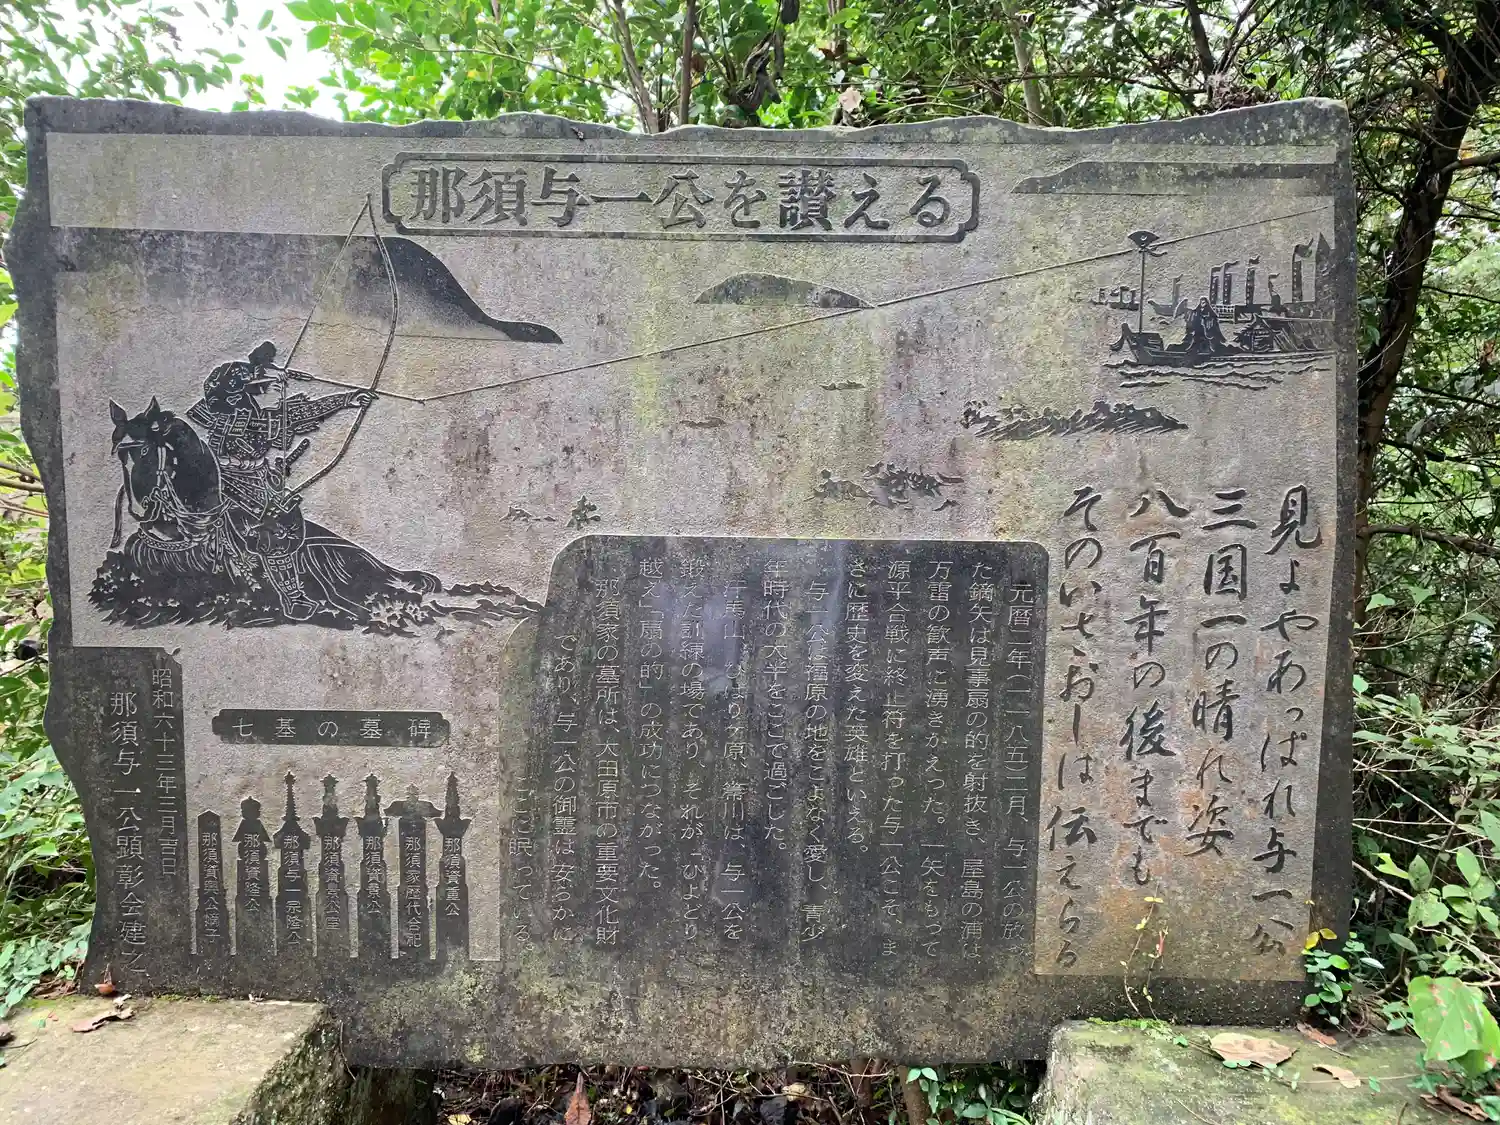 那須与一公を讃える
見よやあっぱれ与一公
三国一の晴れ姿
八百年の後までも
そのいさおしは伝えらる
元暦二年(一一八五)二月、与一公の放っ
た鏑矢は見事扇の的を射抜き、屋島の浦は
万雷の歓声に湧きかえった。一矢をもって
源平合戦に終止符を打った与一公こそ、ま
さに歴史を変えた英雄といえる。
与一公は福原の地をこよなく愛し、青少
年時代の大半をここで過ごした。
汗馬山、ひばりケ原、箒川は、与一公を
鍛えた訓練の場であり、それが「ひよどり
越え」「扇の的」の成功につながった。
那須家の墓所は、大田原市の重要文化財
であり、与一公の御霊は安らかに
ここに眠っている。
七基の墓碑
那須資重公
那須家歴代合祀
那須資景公
那須資景公室
那須与一宗隆公
那須資隆公
那須資興公嫡子
昭和六十三年三月吉日
那須与一公顕彰会建之